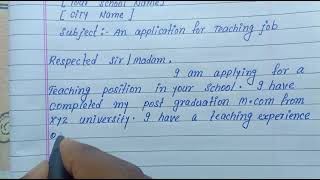 [ Your School Name]
[ City Name ]
Subject:- An application for Teaching job
Respected Sir/madam.
I am applying for a
Teaching position in your school. I have
completed my post graduation M.com from
xyz university. I have a teaching experience
o